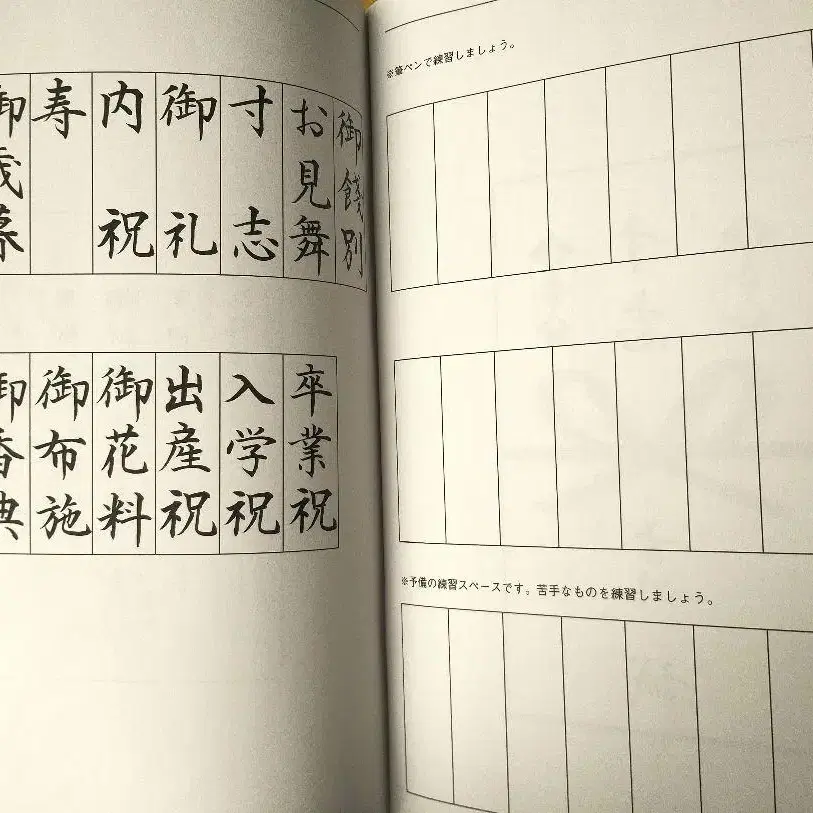 御餞別
お見舞
寸志
御礼
内祝
寿
御歳暮
卒業祝
入学祝
出産祝
御花料
御布施
御香典
※筆ペンで練習しましょう。
※予備の練習スペースです。苦手なものを練習しましょう。